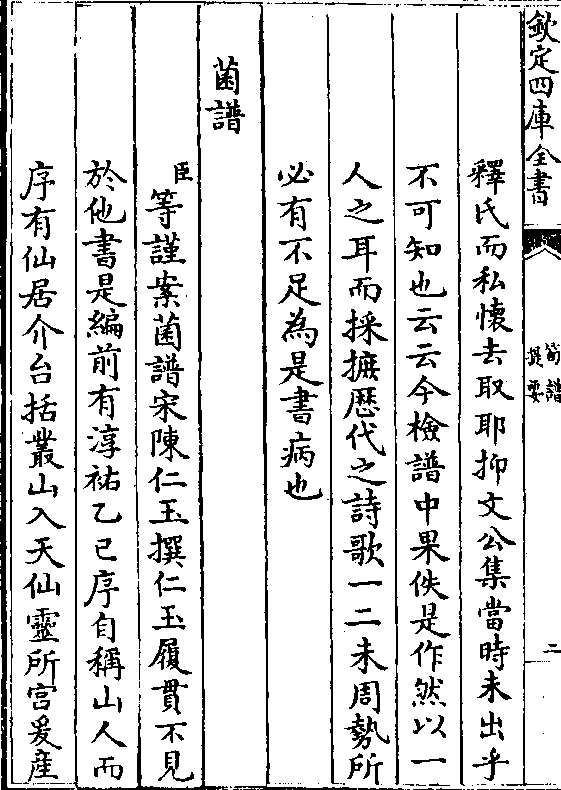 欽定四庫全書
筍譜
提要
二
釋氏而私懷去取耶抑文公集當時未出乎
不可知也云云今檢譜中果佚是作然以一
人之耳而採摭歴代之詩歌一二未周勢所
必有不足為是書病也
菌譜
臣等謹案菌譜宋陳仁玉撰仁玉履貫不見
於他書是編前有淳祐乙巳序自稱山人而
序有仙居介台括叢山入天仙靈所宫爰產